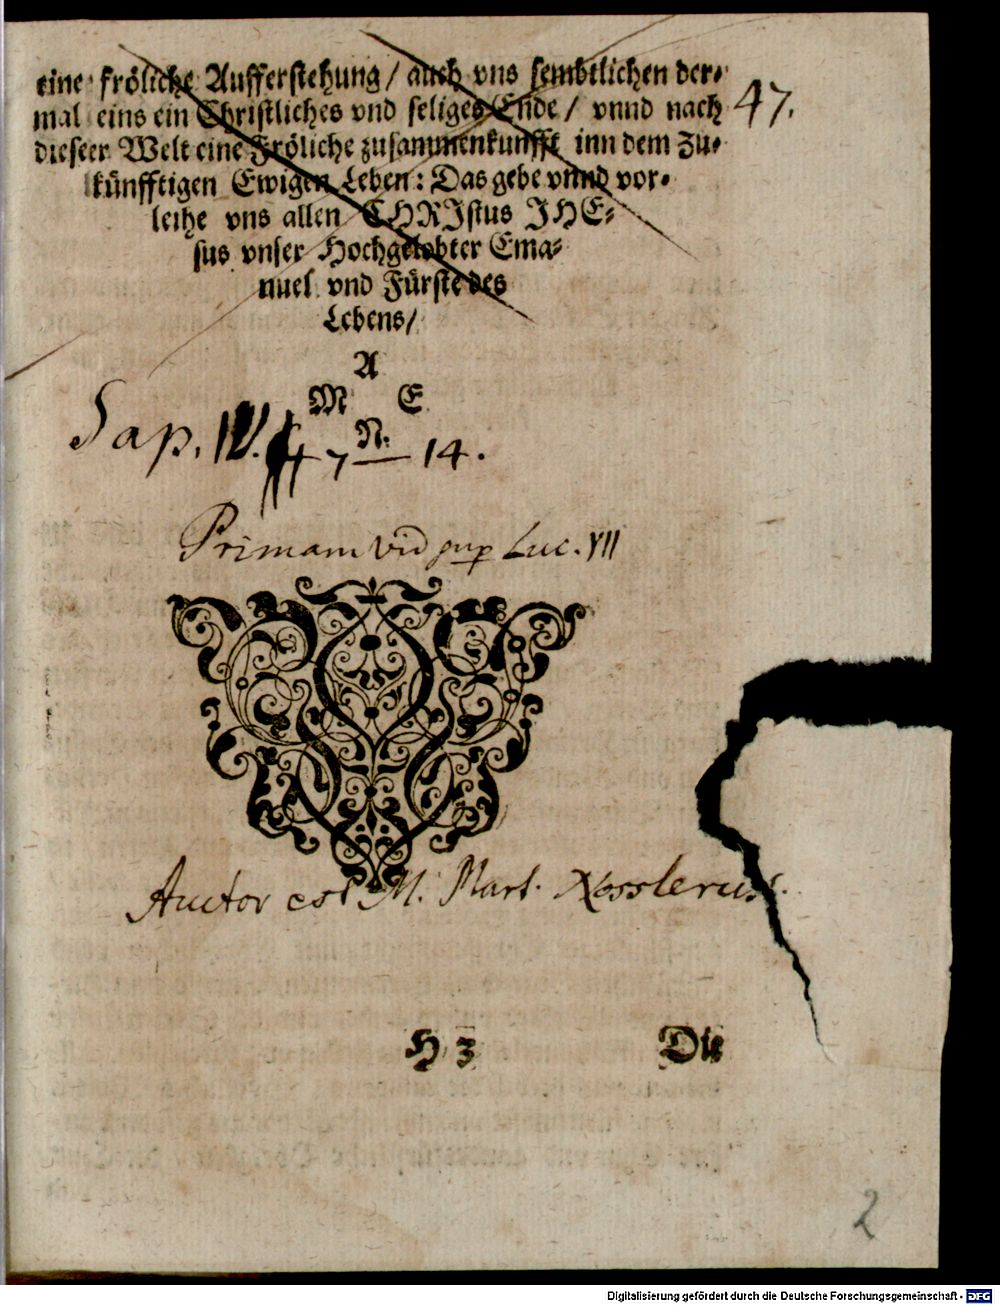 eine fröliche Aufferstehung / auch vns sembtlichen der-
mal eins ein Christliches vnd seliges Ende / vnnd nach 47.
dieser Welt eine Fröliche zusammenkunfft inn dem Zu-
künfftigen Ewigen Leben: Das gebe vnnd vor-
leihe vns allen CHRIstus JHE-
sus vnser Hochgelobter Ema-
nuel vnd Fürste des
Lebens /
A
M E
N.
Sap. IV. 7 — 14.
Primam vid sup Luc. VII
Auctor est M. Mart. Nosslerus.
H 3 Die
2
Digitalisierung gefördert durch die Deutsche Forschungsgemeinschaft - DFG